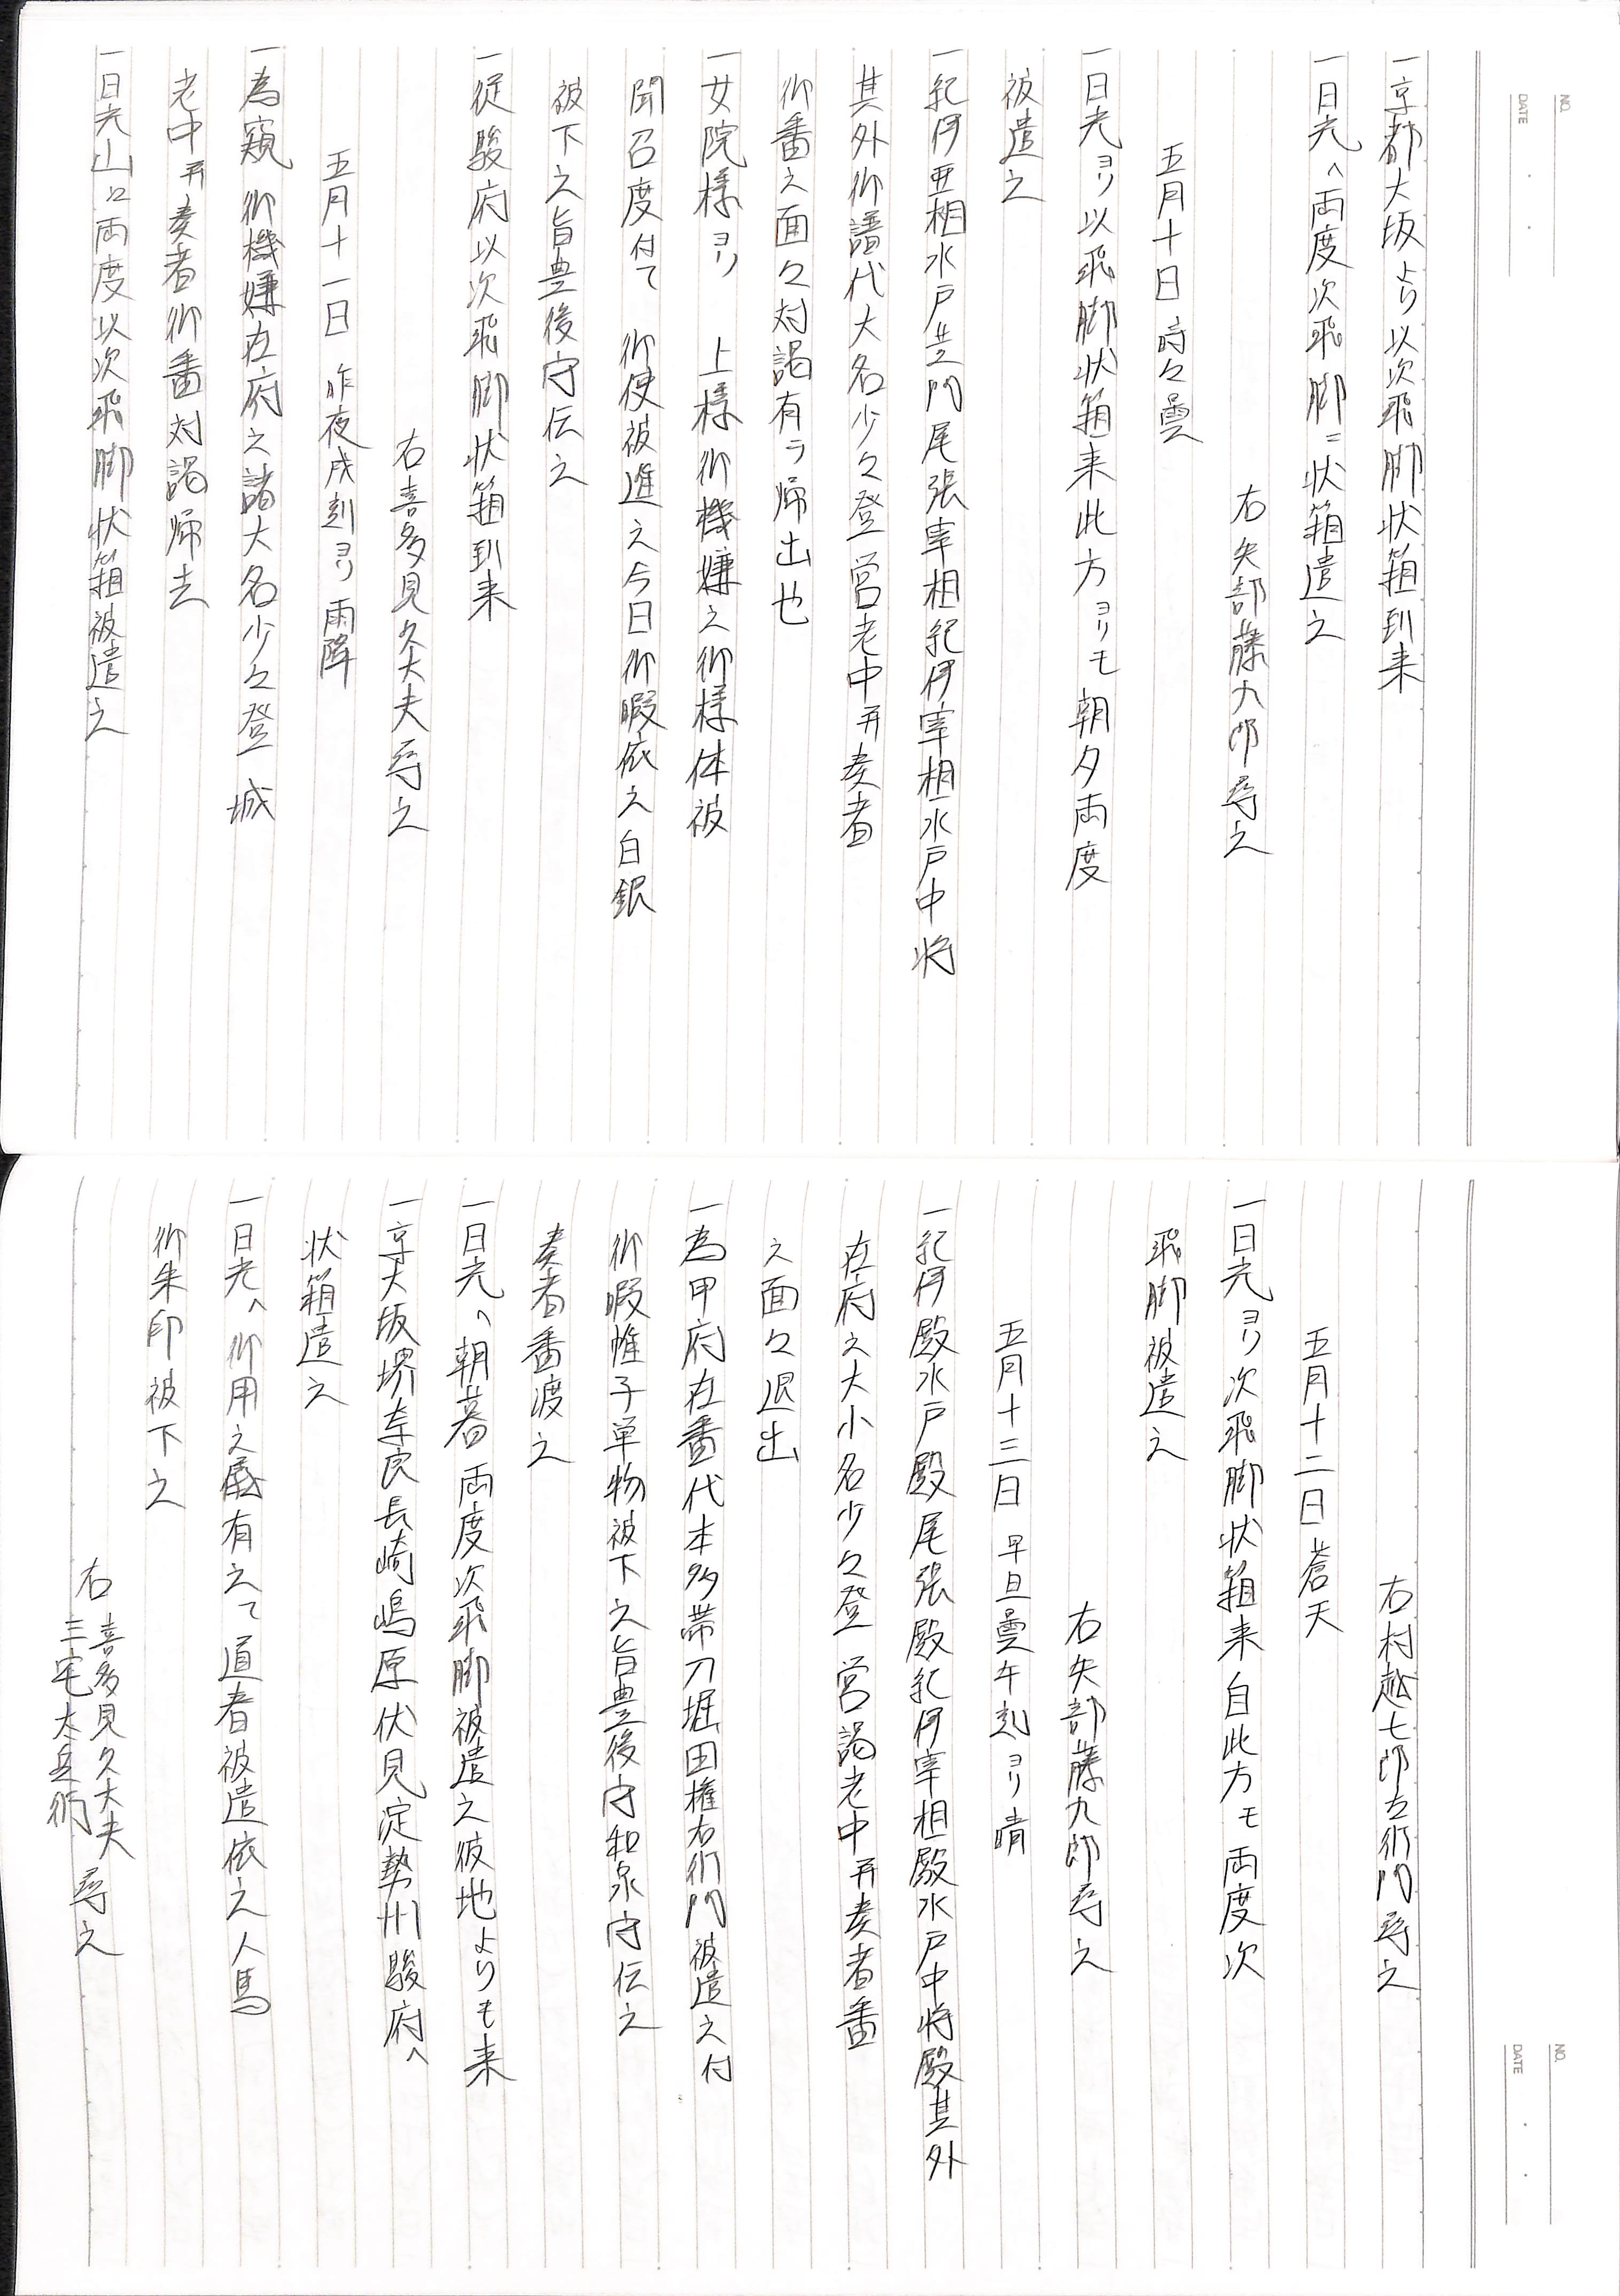 NO.
DATE
一京都大坂より以次飛脚状箱到来
一日光へ両度次飛脚ニ状箱遣之
右矢部藤九郎尋之
五月十日 時々曇
一日光ヨリ以飛脚状箱来此方ヨリモ朝夕両度
被遣之
一紀伊亜相水戸黄門尾張宰相紀伊宰相水戸中将
其外御譜代大名少々登 営老中并奏者
御番之面々対謁有テ帰出也
一女院様ヨリ 上様御機嫌之御様体被
聞召度付て 御使被進之今日御暇依之白銀
被下之旨豊後守伝之
一従駿府以次飛脚状箱到来
右喜多見久大夫尋之
五月十一日 昨夜戌刻ヨリ雨降
一為窺 御機嫌在府之諸大名少々登 城
老中并奏者御番対謁帰去
一日光山江両度以次飛脚状箱被遣之
NO.
DATE
右村越七郎左衛門尋之
五月十二日 蒼天
一日光ヨリ次飛脚状箱来自此方モ両度次
飛脚被遣之
右矢部藤九郎尋之
五月十三日 早旦曇午刻ヨリ晴
一紀伊殿水戸殿尾張殿紀伊宰相殿水戸中将殿其外
在府之大小名少々登 営謁老中并奏者番
之面々退出
一為甲府在番代本多帯刀堀田権右衛門被遣之付
御暇帷子単物被下之旨豊後守和泉守伝之
奏者番渡之
一日光へ朝暮両度次飛脚被遣之彼地よりも来
一京大坂堺奈良長崎嶋原伏見淀勢州駿府へ
状箱遣之
一日光へ御用之儀有之て道者被遣依之人馬
御朱印被下之
右 喜多見久大夫 三宅太兵衛 尋之